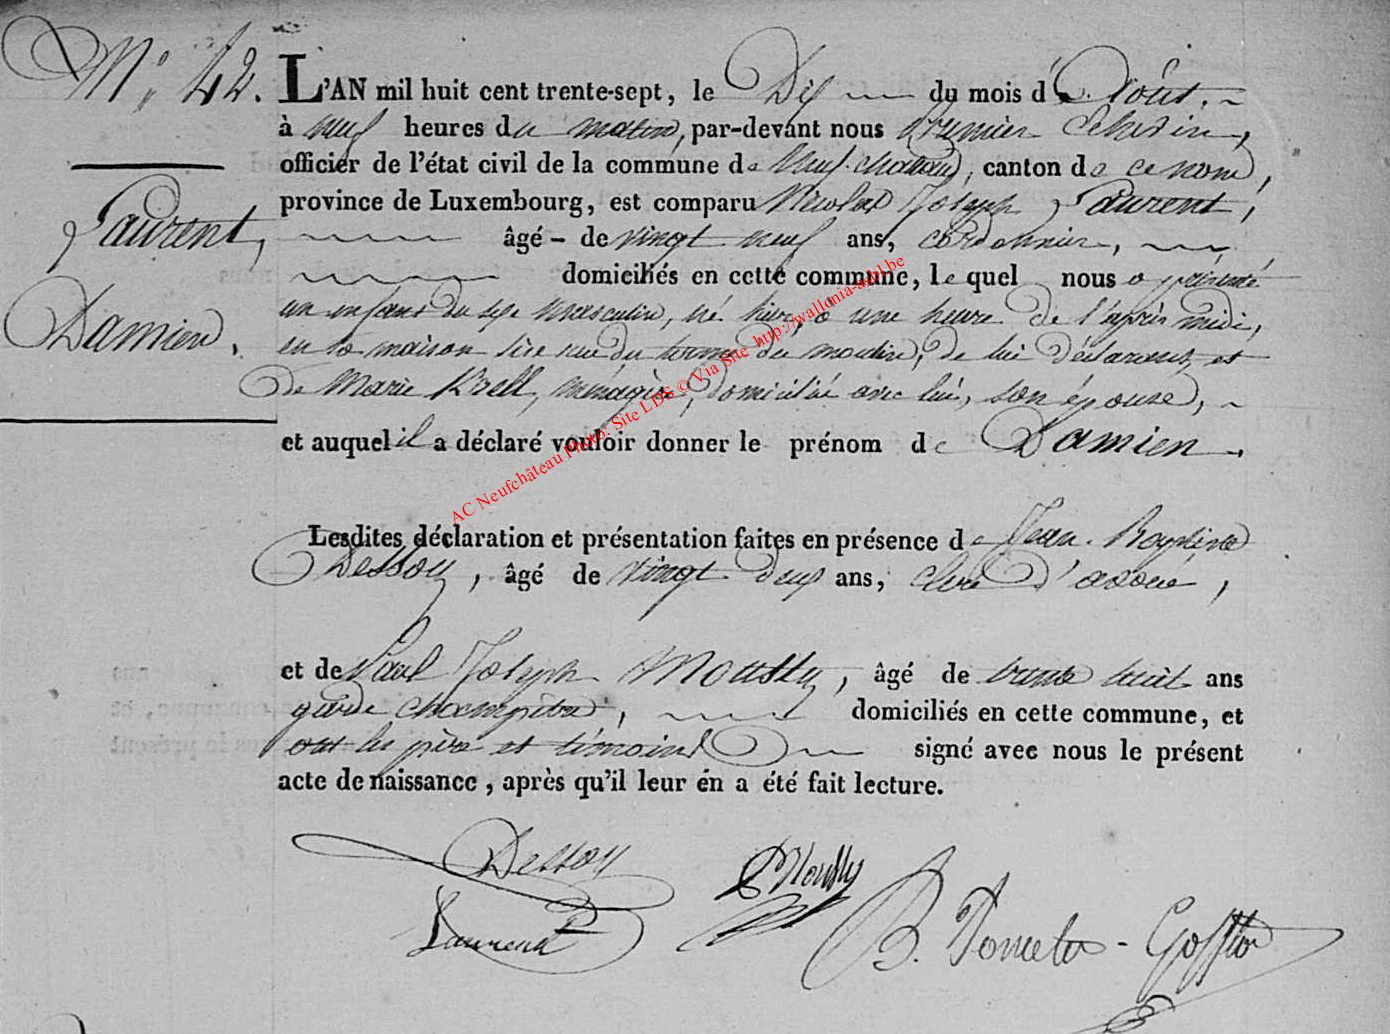 N° 42.
Laurent,
Damien.
L'AN mil huit cent trente-sept, le Dix du mois d'Août.
à neuf heures du matin, par-devant nous Premier Echevin,
officier de l'état civil de la commune de Neufchateau, canton de ce nom,
province de Luxembourg, est comparu Nicolas Joseph Laurent,
âgé - de vingt neuf ans, cordonnier,
domiciliés en cette commune, lequel nous a présenté
un enfant du sexe masculin, né hier, à une heure de l'après midi,
en sa maison sise rue du terme du moulin, de lui déclarant, et
de Marie Krell, ménagère, domiciliée avec lui, son épouse,
et auquel il a déclaré vouloir donner le prénom de Damien.
Lesdites déclaration et présentation faites en présence de Jean-Baptiste
Dessoy, âgé de vingt deux ans, clerc d'avoué,
et de Paul Joseph Mousty, âgé de trente huit ans
garde champêtre, domiciliés en cette commune, et
ont les père et témoins signé avec nous le présent
acte de naissance, après qu'il leur en a été fait lecture.
Dessoy
PMousty
Laurent
AC Neufchâteau Photo: Site LDS © Via Site http://wallonia-asbl.be